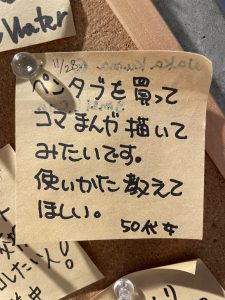 water
11/28
ペンタブを買って
コマまんが描いて
みたいです。
使いかた教えて
ほしい。
50代 女
したい人!